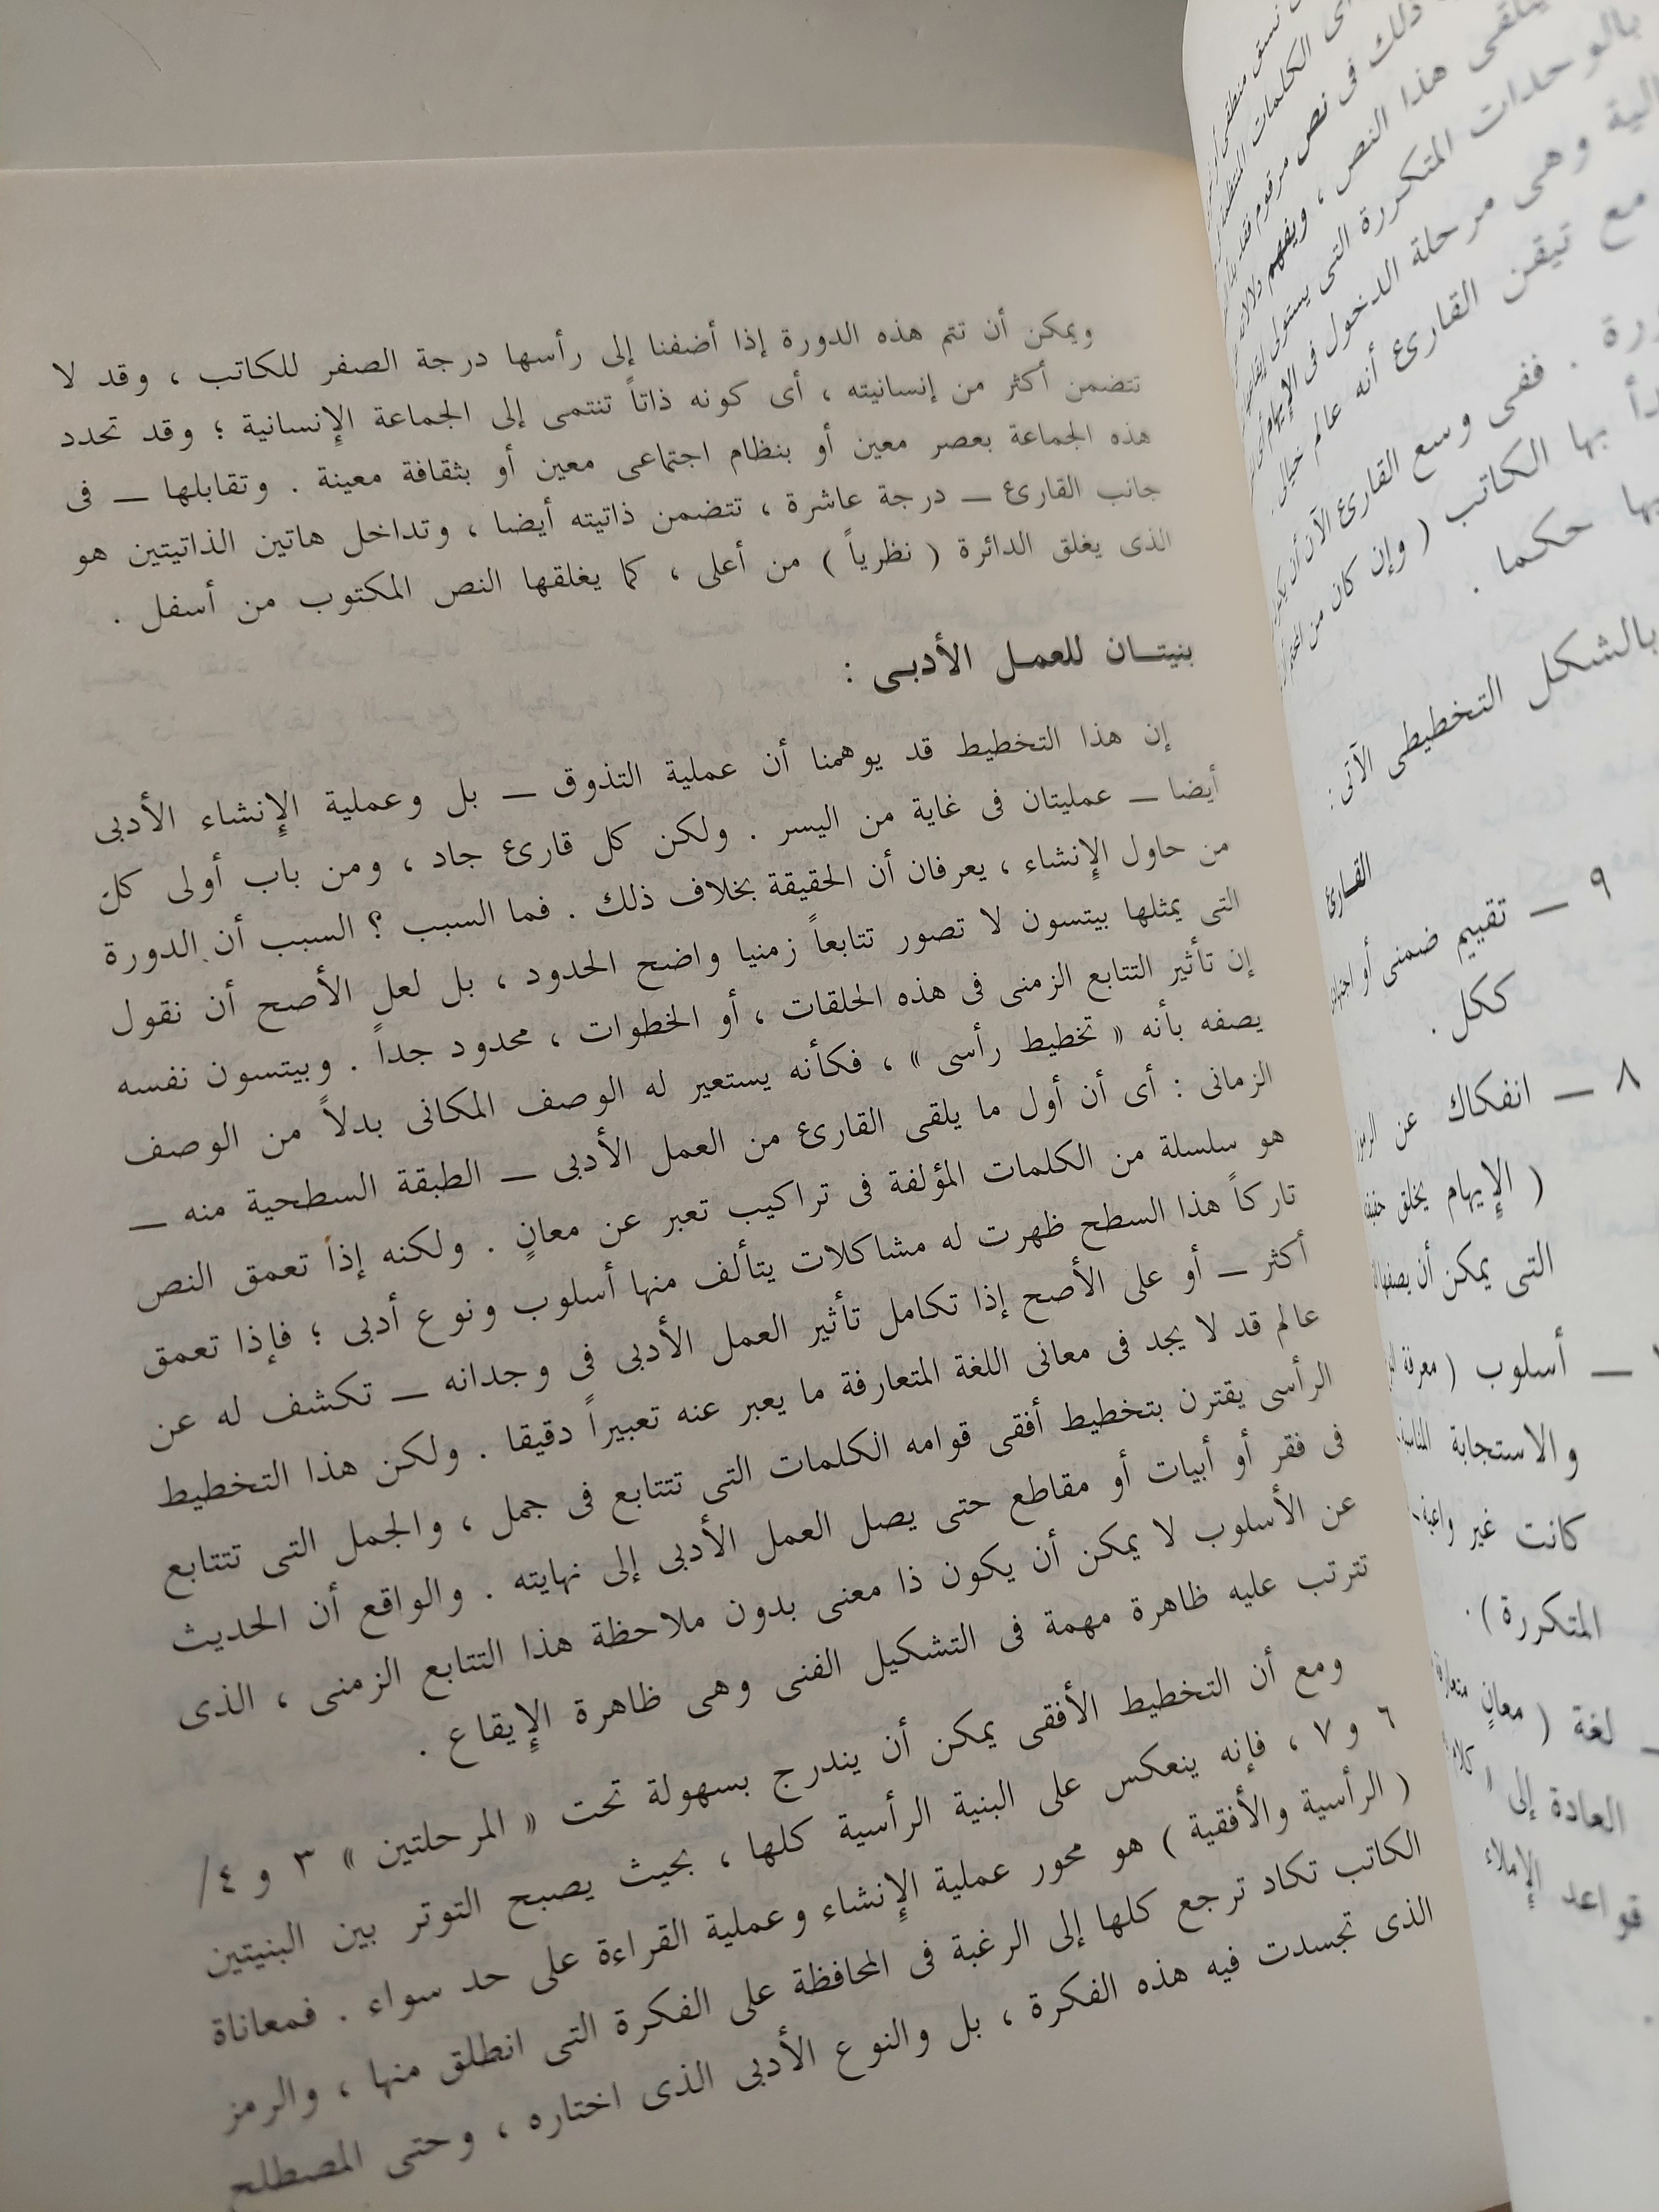 نسق منطقى
الكلمات
ذلك فى نص مرقوم فقد
يتلقى هذا النص ، ويفهم
بالوحدات المتكررة التى يستولى
وهى مرحلة الدخول فى الإيهام أى
مع تيقن القارئ أنه عالم خيالى .
. ففى وسع القارئ الآن أن
بها الكاتب ( وإن كان من
حكما .
بالشكل التخطيطى الآتى :
القارئ
٩ — تقييم ضمنى أو
ككل .
٨ — انفكاك عن
( الإيهام يخلق
التى يمكن أن يصفها
— أسلوب ( معرفة
والاستجابة
كانت غير واعية
المتكررة ) .
لغة ( معانٍ
العادة إلى «
قواعد الإملاء
ويمكن أن تتم هذه الدورة إذا أضفنا إلى رأسها درجة الصفر للكاتب ، وقد لا
تتضمن أكثر من إنسانيته ، أى كونه ذاتاً تنتمى إلى الجماعة الإنسانية ؛ وقد تحدد
هذه الجماعة بعصر معين أو بنظام اجتماعى معين أو بثقافة معينة . وتقابلها — فى
جانب القارئ — درجة عاشرة ، تتضمن ذاتيته أيضا ، وتداخل هاتين الذاتيتين هو
الذى يغلق الدائرة ( نظرياً ) من أعلى ، كما يغلقها النص المكتوب من أسفل .
بنيتـان للعمـل الأدبـى :
إن هذا التخطيط قد يوهمنا أن عملية التذوق — بل وعملية الإنشاء الأدبى
أيضا — عمليتان فى غاية من اليسر . ولكن كل قارئ جاد ، ومن باب أولى كل
من حاول الإنشاء ، يعرفان أن الحقيقة بخلاف ذلك . فما السبب ؟ السبب أن الدورة
التى يمثلها بيتسون لا تصور تتابعاً زمنيا واضح الحدود ، بل لعل الأصح أن نقول
إن تأثير التتابع الزمنى فى هذه الحلقات ، أو الخطوات ، محدود جداً . وبيتسون نفسه
يصفه بأنه « تخطيط رأسى » ، فكأنه يستعير له الوصف المكانى بدلاً من الوصف
الزمانى : أى أن أول ما يلقى القارئ من العمل الأدبى — الطبقة السطحية منه —
هو سلسلة من الكلمات المؤلفة فى تراكيب تعبر عن معانٍ . ولكنه إذا تعمق النص
تاركاً هذا السطح ظهرت له مشاكلات يتألف منها أسلوب ونوع أدبى ؛ فإذا تعمق
أكثر — أو على الأصح إذا تكامل تأثير العمل الأدبى فى وجدانه — تكشف له عن
عالم قد لا يجد فى معانى اللغة المتعارفة ما يعبر عنه تعبيراً دقيقا . ولكن هذا التخطيط
الرأسى يقترن بتخطيط أفقى قوامه الكلمات التى تتتابع فى جمل ، والجمل التى تتتابع
فى فقر أو أبيات أو مقاطع حتى يصل العمل الأدبى إلى نهايته . والواقع أن الحديث
عن الأسلوب لا يمكن أن يكون ذا معنى بدون ملاحظة هذا التتابع الزمنى ، الذى
تترتب عليه ظاهرة مهمة فى التشكيل الفنى وهى ظاهرة الإيقاع .
ومع أن التخطيط الأفقى يمكن أن يندرج بسهولة تحت « المرحلتين » ٣ و ٤/
٦ و ٧ ، فإنه ينعكس على البنية الرأسية كلها ، بحيث يصبح التوتر بين البنيتين
( الرأسية والأفقية ) هو محور عملية الإنشاء وعملية القراءة على حد سواء . فمعاناة
الكاتب تكاد ترجع كلها إلى الرغبة فى المحافظة على الفكرة التى انطلق منها ، والرمز
الذى تجسدت فيه هذه الفكرة ، بل والنوع الأدبى الذى اختاره ، وحتى المصطلح